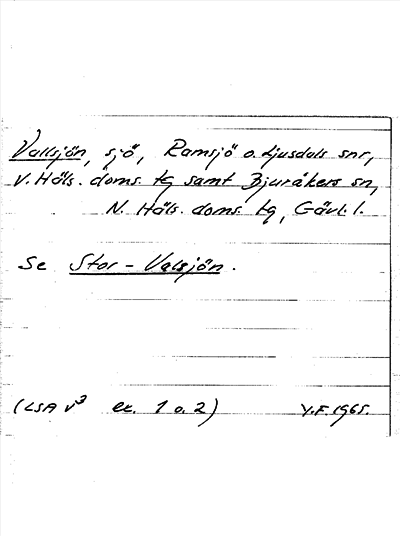 Vallsjön, sjö, Ramsjö o. Ljusdals snr,
V. Häls. doms. tg samt Bjuråkers sn,
N. Häls. doms. tg, Gävl. l.
Se Stor-Valsjön.
(LSA V3 ex. 1 o. 2) Y.F. 1965.